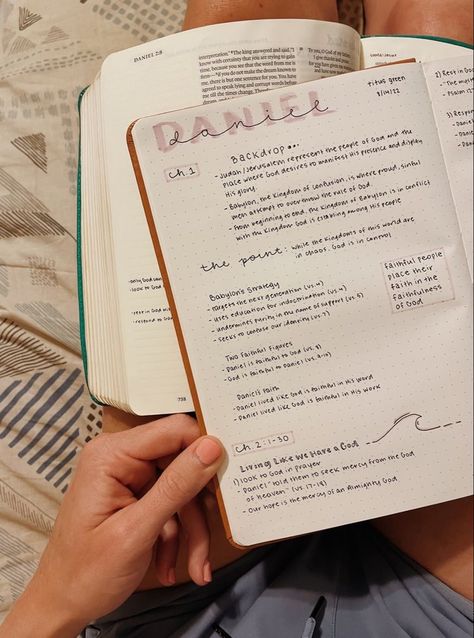 DANIEL 2:8
interpretation." The king answered and said,
know with certainty that
because you see that the word from me is
if you do not make the dream known to
me, there is but one sentence for you.
You have agreed to speak lying and corrupt
words before me till the times change.
-only God can
-look to God
-rest in God
-respond to God
738
DANIEL
daniel
Titus Green
8/14/22
ch. 1
Backdrop...
- Judah/Jerusalem represent the people of God and the
place where God desires to manifest His presence and display
His glory.
- Babylon, the kingdom of confusion, is where proud, sinful
men attempt to overthrow the rule of God.
- From beginning to end, the kingdom of Babylon is in conflict
with the kingdom God is establishing among His people
the point: while the kingdoms of this world are
in chaos, God is in control
Babylon's Strategy
- targets the next generation (vs. 4)
- uses education for indoctrination (vs. 4)
- undermines purity in the name of support (vs. 5)
- seeks to confuse our identity (vs. 7)
faithful people
place their
faith in the
faithfulness
of God
Two Faithful Figures
- Daniel is faithful to God (vs. 8)
- God is faithful to Daniel (vs. 9-10)
Daniel's Faith
- Daniel lived like God is faithful in His word
- Daniel lived like God is faithful in His work
ch. 2:1-30
Living Like We Have a God
1) look to God in prayer
- Daniel "told them to seek mercy from the God
of heaven" (vs. 17-18)
- Our hope is the mercy of an Almighty God
2) Rest in
- Psalm 12
3) Respo
- Daniel